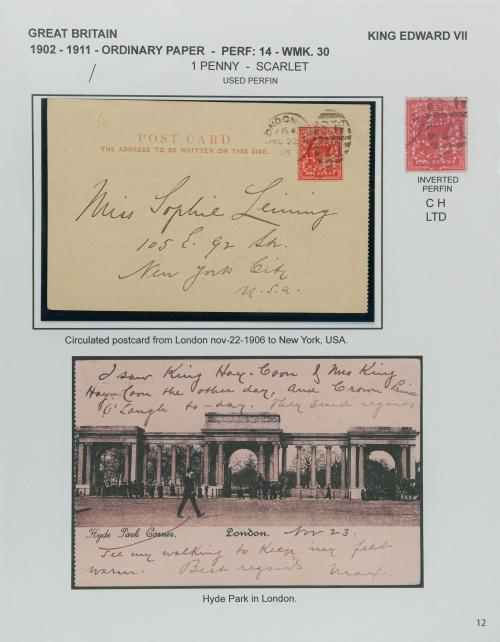 GREAT BRITAIN
KING EDWARD VII
1902 - 1911 - ORDINARY PAPER - PERF: 14 - WMK. 30
1 PENNY - SCARLET
USED PERFIN
POST CARD
THE ADDRESS TO BE WRITTEN ON THIS SIDE.
ONE PENNY
Miss Sophie Leining
105 E. 92 St.
New York City
U.S.A.
ONE PENNY
INVERTED
PERFIN
C H
LTD
Circulated postcard from London nov-22-1906 to New York, USA.
I saw King Hay-Coon & Mrs King
Hay-Coon the other day, And Crown Prince
O'Laugh to-day. They send regards
Hyde Park Corner. London. Nov 23.
See my walking to keep my feet
warm. Best regards Max.
Hyde Park in London.
12